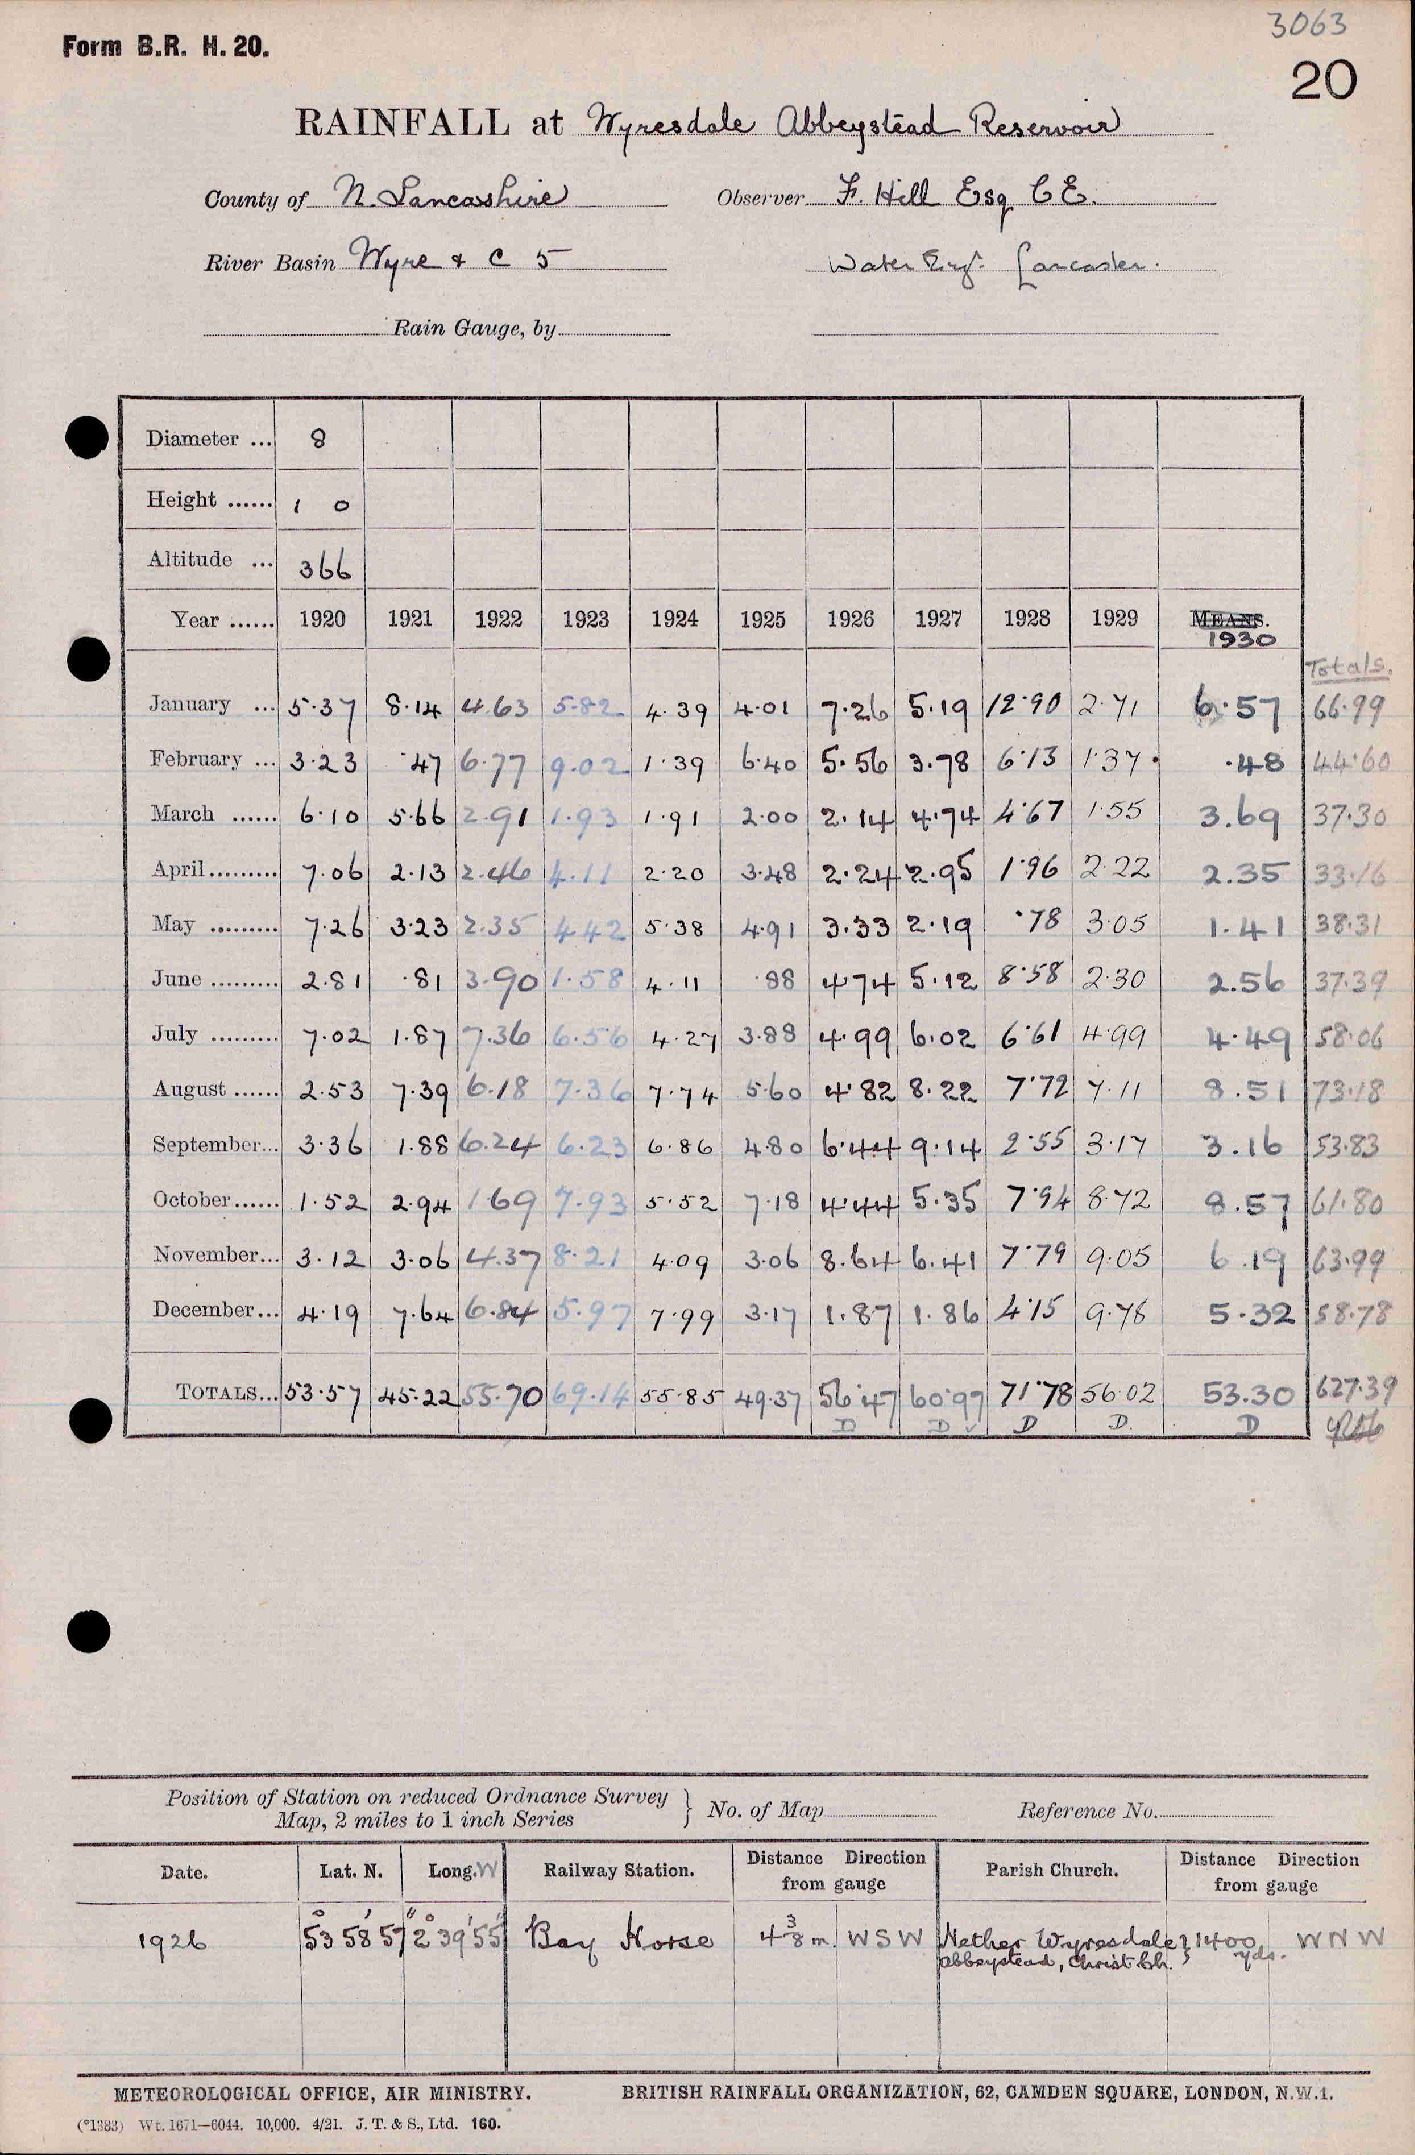 3063
Form B.R. H. 20.
20
RAINFALL at Wyresdale Abbeystead Reservoir
County of N. Lancashire Observer F. Hill Esq CE.
River Basin Wyre & C 5 Water Engr. Lancaster.
Rain Gauge, by
Diameter ... 8
Height ...... 1 0
Altitude ... 366
Year ...... 1920 1921 1922 1923 1924 1925 1926 1927 1928 1929 MEANS.
1930
Totals.
January ... 5.37 8.14 4.63 5.82 4.39 4.01 7.26 5.19 12.90 2.71 6.57 66.99
February ... 3.23 .47 6.77 9.02 1.39 6.40 5.56 3.78 6.13 1.37 .48 44.60
March ...... 6.10 5.66 2.91 1.93 1.91 2.00 2.14 4.74 4.67 1.55 3.69 37.30
April......... 7.06 2.13 2.46 4.11 2.20 3.48 2.24 2.95 1.96 2.22 2.35 33.16
May ......... 7.26 3.23 2.35 4.42 5.38 4.91 3.33 2.19 .78 3.05 1.41 38.31
June ......... 2.81 .81 3.90 1.58 4.11 .88 4.74 5.12 8.58 2.30 2.56 37.39
July ......... 7.02 1.87 7.36 6.56 4.27 3.88 4.99 6.02 6.61 4.99 4.49 58.06
August ...... 2.53 7.39 6.18 7.36 7.74 5.60 4.82 8.22 7.72 7.11 8.51 73.18
September... 3.36 1.88 6.24 6.23 6.86 4.80 6.44 9.14 2.55 3.17 3.16 53.83
October...... 1.52 2.94 1.69 7.93 5.52 7.18 4.44 5.35 7.94 8.72 8.57 61.80
November... 3.12 3.06 4.37 8.21 4.09 3.06 8.64 6.41 7.79 9.05 6.19 63.99
December... 4.19 7.64 6.84 5.97 7.99 3.17 1.87 1.86 4.15 9.78 5.32 58.78
TOTALS... 53.57 45.22 55.70 69.14 55.85 49.37 56.47 60.97 71.78 56.02 53.30 627.39
D D ✓ D D. D
Position of Station on reduced Ordnance Survey
Map, 2 miles to 1 inch Series } No. of Map Reference No.
Date. Lat. N. Long. W Railway Station. Distance Direction from gauge Parish Church. Distance Direction from gauge
1926 53° 58' 57" 2° 39' 55" Bay Horse 4 3/8 m. W S W Nether Wyresdale } 1400 yds. W N W
Abbeystead, Christ Ch.
METEOROLOGICAL OFFICE, AIR MINISTRY. BRITISH RAINFALL ORGANIZATION, 62, CAMDEN SQUARE, LONDON, N.W.1.
(*1383) Wt. 1671—6044. 10,000. 4/21. J. T. & S., Ltd. 160.